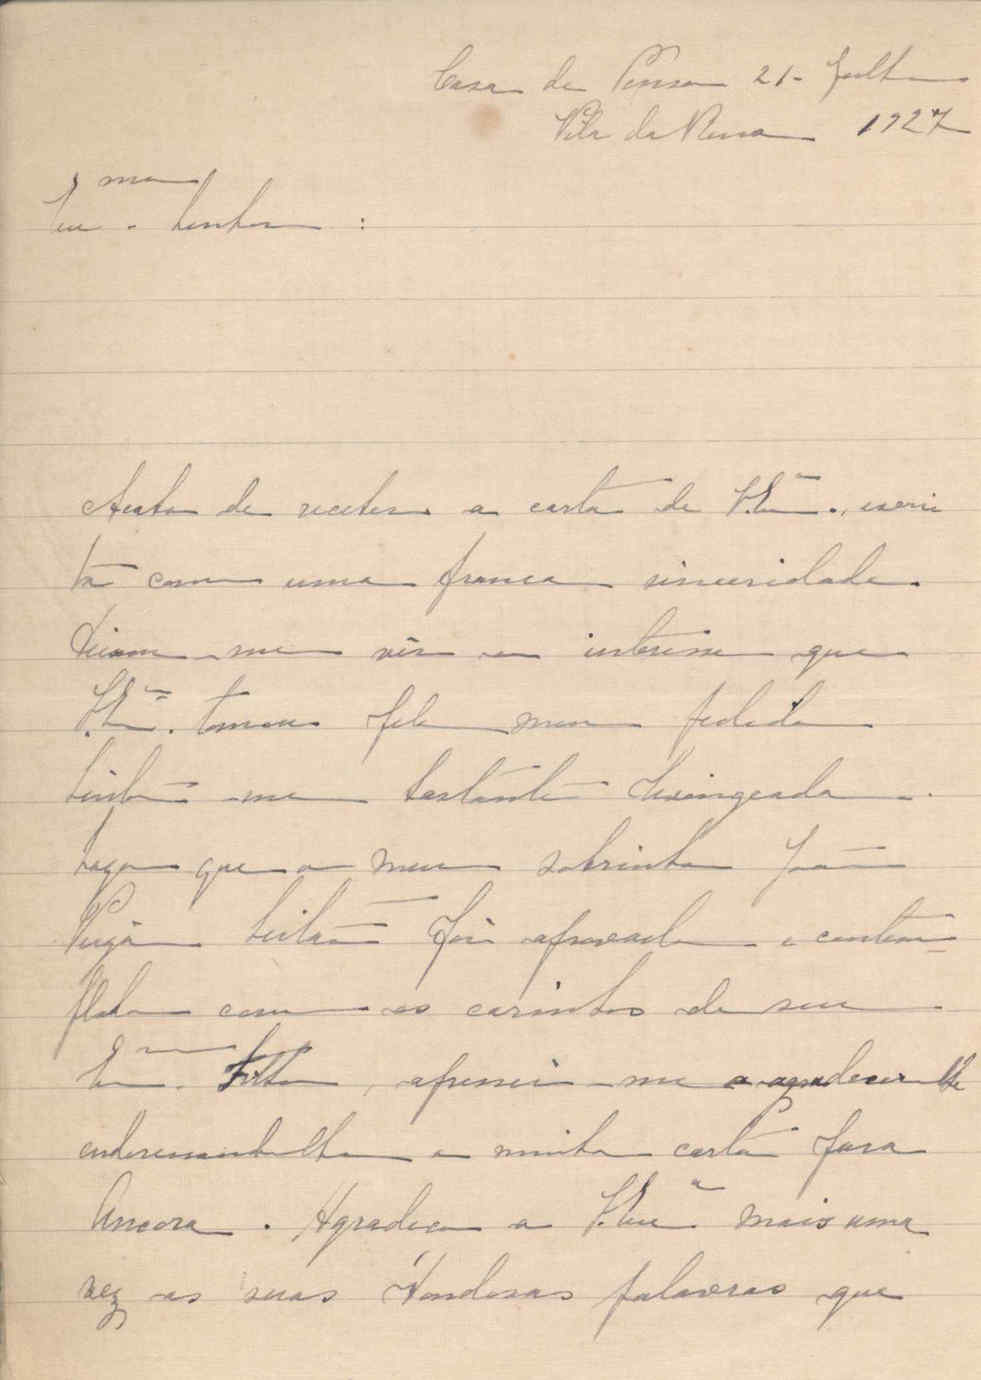 Casa de Pensão 21- Julho
Vila da 1927
Exmo Senhor :
Acabo de receber a carta de V. Exª., escri
ta com uma franca sinceridade.
Deixou-me vêr o interesse que
V. Exª. tomou pelo meu pedido
sinto-me bastante lisongeado.
Logo que o meu sobrinho João
Leitão foi aprovado e contem
plado com os carinhos de seu
Exmo. , apressei-me a agradecer lhe
enderessando lhe a minha carta para
Ancora. Agradeço a V. Exª mais uma
vez as suas bondosas palavras que